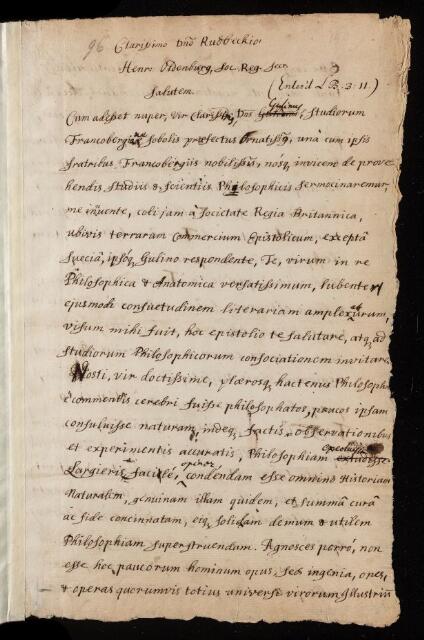 96 Clarissimo Dno Rudbeckio
Henr. Oldenburg, Soc. Reg. Secr.
Salutem.
(Enter'd L.B. 3. 11.)
Gulinus
Cum adesset nuper, Vir Clarissime, Dns , Studiorum
Francobergianæ Sobolis præfectus Ornatissimq, unà cum ipsis
fratribus Francobergiis nobilissimis, nosq, invicem de prove
hendis studiis & scientiis Philosophicis sermocinaremur,
me innuente, coli jam a Societate Regia Britannica,
ubivis terrarum Commercium Epistolicum, exceptâ
Sueciâ, ipsoq, Gulino respondente, Te, virum in re
Philosophica & Anatomica versatissimum, lubenter
ejusmodi consuetudinem literariam amplexaturum,
visum mihi fuit, hoc epistolio te salutare, atq, ad
Studiorum Philosophicorum consociationem invitare.
Nosti, vir doctissime, plærosq, hactenus Philosophos
è commentis cerebri fuisse philosophatos, paucos ipsam
consuluisse naturam, indeq, factis observationibus
et experimentis accuratis, Philosophiam
Largieris facilè, opinor, condendam esse omnino Historiam
Naturalem, genuinam illam quidem, et summâ curâ
ac fide concinnatam, eiq, solidam demum & utilem
Philosophiam superstruendam. Agnosces porrò, non
esse hoc paucorum hominum opus, sed ingenia, opes,
& operas quorumvis totius universi virorum Illustrium